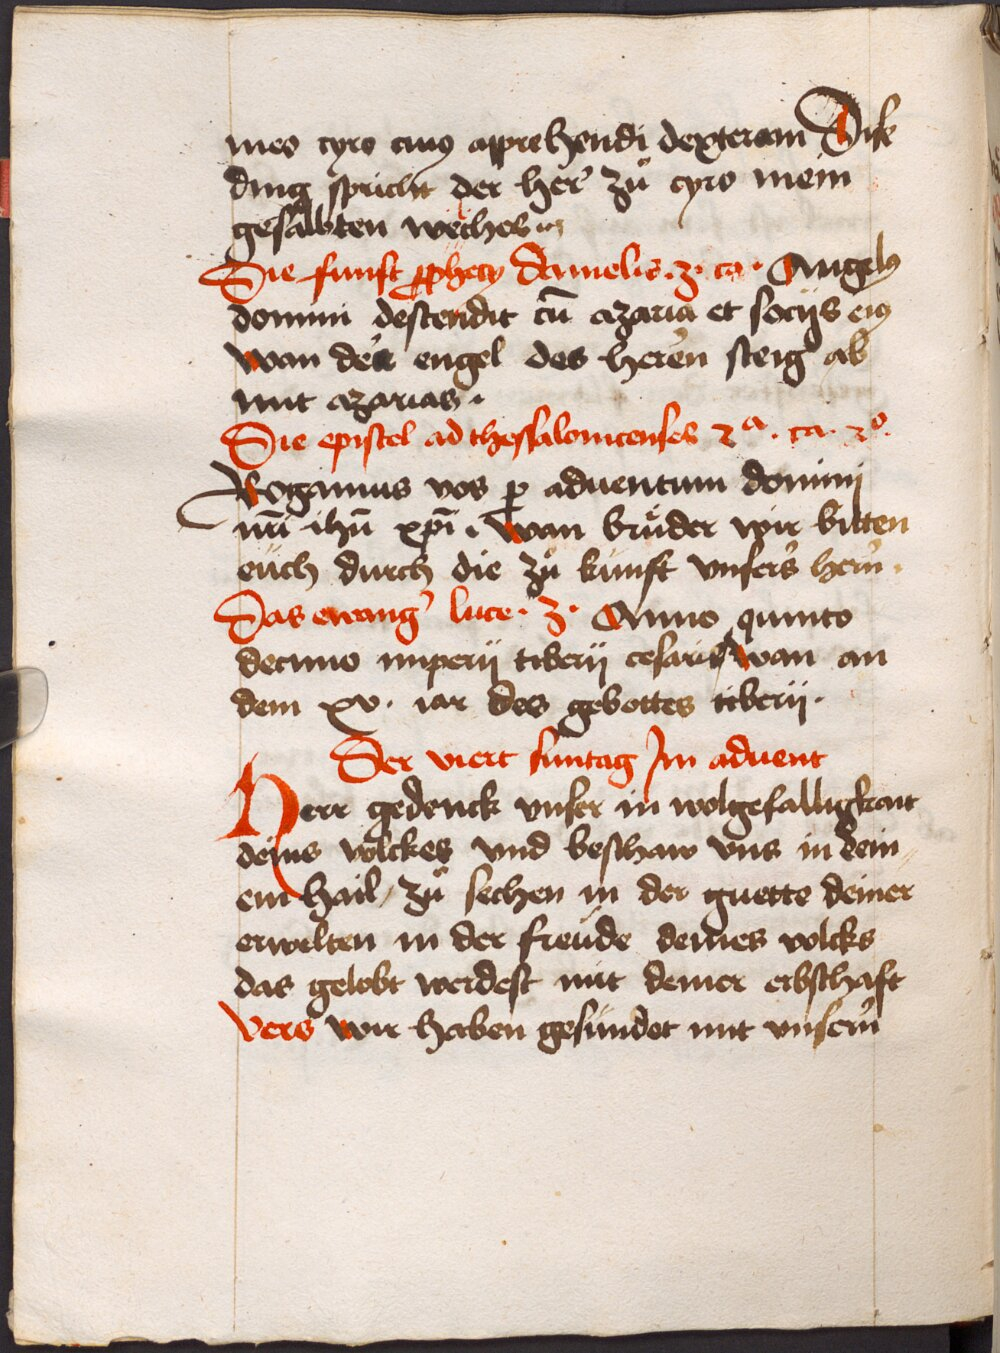 meo cyro cuiꝰ apprehendi dexteram Dise
ding spricht der her' zů cyro mein
gesalbten weches ꝛc
Die funft ꝓphecy danielis .3. ca. Angelꝰ
domini descendit cū azaria et socijs eiꝰ
wan der engel des heren steig ab
mit azarias .
Die epistel ad thessalonicenses 2ᵃ. ca. 2º.
Rogamus vos ꝑ aduentum domini
nr̄i ihū xp̄i . wan brůder wir bitten
eüch durch die zů kunft vnsers hern̄ .
Das ewang' luce . 3 . Anno quinto
decimo imperij tiberij cesaris wan an
dem xv. iar des gebottes tiberij .
Der viert suntag Im aduent
Herr gedenck vnser in wolgefalligkait
deins volckes vnd beschaw vns in dein
em hail / zů sechen in der guette deiner
erwelten in der freüde deines volcks
das gelobt werdest mit deiner erbschaft
Vers wir haben gesündet mit vnsern̄